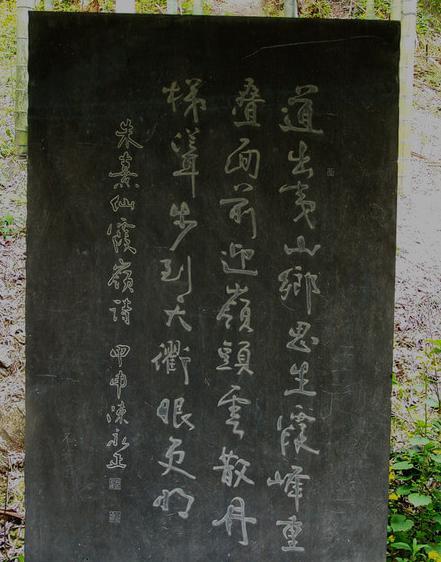 道出夷山鄉思生霞峰重
叠面前迎嶺頭雲散丹
梯聳步到天衢眼更明
朱熹仙霞嶺詩 甲申陳永正